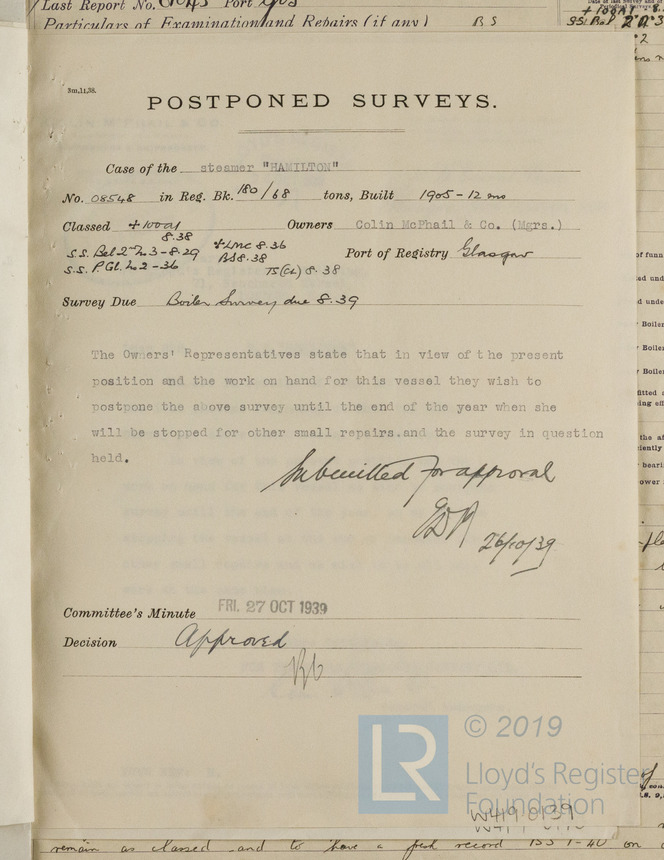 Last Report No. Port
Particulars of Examination and Repairs (if any) B S
POSTPONED SURVEYS.
Case of the steamer "HAMILTON"
No. 08548 in Reg. Bk. 180/68 tons, Built 1905-12 mo
Classed +100A1 Owners Colin McPhail & Co. (Mgrs.)
8.38
S.S. Bel 2nd No 3-8.29 +LMC 8.36 Port of Registry Glasgow
S.S. P Gl. No 2-36 BS 8.38
TS(CL) 8.38
Survey Due Boiler Survey due 8.39
The Owners' Representatives state that in view of the present
position and the work on hand for this vessel they wish to
postpone the above survey until the end of the year when she
will be stopped for other small repairs.and the survey in question
held.
Submitted for approval
26/10/39
Committee's Minute FRI. 27 OCT 1939
Decision Approved
LR © 2019
Lloyd's Register
Foundation
W419-0139
remain as classed and to have a fresh record BS 1-40 on